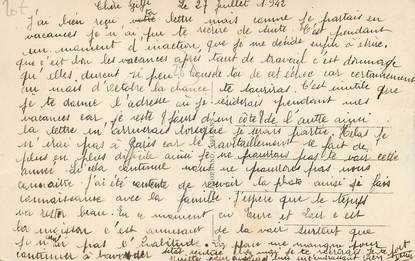 Chère Gilse Le 27 Juillet 1942
J'ai bien reçu votre lettre mais comme je partais en
vacances je n'ai pu te répondre de suite. C'est pendant
un moment d'inaction que je me decide enfin a écrire,
que c'est bon les vacances après tant de travail c'est dommage
qu'elles durent si peu. Console toi de cet echec car certainement
au mois d'octobre la chance te sourira. C'est inutile que
je te donne l'adresse où je résiderais pendant mes
vacances car je reste jours d'un côté de l'autre ainsi
la lettre m'arriverait lorsque je serais partie. Helas je
n'irai pas à Paris car le ravitaillement le fait de
plus en plus difficile ainsi je ne pourrais pas te voir cette
année. Si cela continue nous ne pourrons pas nous
connaître. J'ai été contente de recevoir la photo ainsi je fais
connaissance avec la famille. J'espère que le temps
va rester beau. En ce moment en Eure et Loir c'est
la moisson c'est amusant de la voir surtout que
je n'en ai pas l'habitude. La place me manque pour
continuer à bavarder